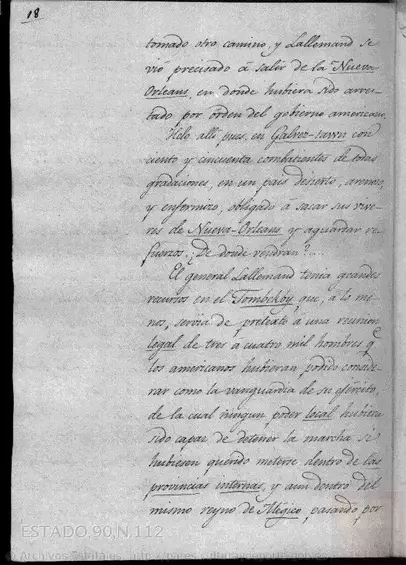 18
tomado otro camino, y Lallemand se
vió precisado á salir de la Nueva
Orleans, en donde hubiera sido arres-
tado por órden del gobierno americano.
Hélo allí pues en Galvez-tawn con
ciento y cincuenta combatientes de todas
graduaciones, en un pais desierto, arenoso
y enfermizo, obligado á sacar sus vive-
res de Nueva-Orleans y aguardar re-
fuerzos. ¿De donde vendran?...
El general Lallemand tenia grandes
recursos en el Tombekby que, á lo me-
nos, servia de pretexto á una reunion
legal de tres á cuatro mil hombres q.
los americanos hubieran podido conside-
rar como la vanguardia de su ejército,
de la cual ningun poder local hubiera
sido capaz de detener la marcha si
hubiesen querido meterse dentro de las
provincias internas, y aun dentro del
mismo reyno de Mégico, pasando por
ESTADO,90,N.112
© Archivos Estatales